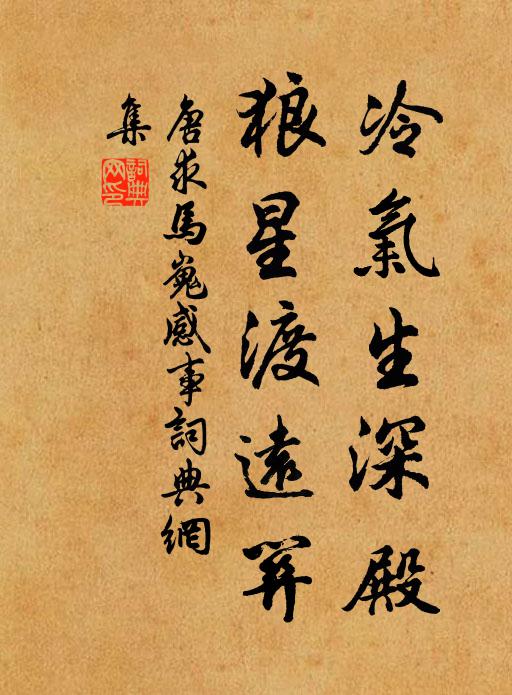 冷氣生深殿
狼星渡遠關
唐求馬嵬感事詞典網
集
詞典網印